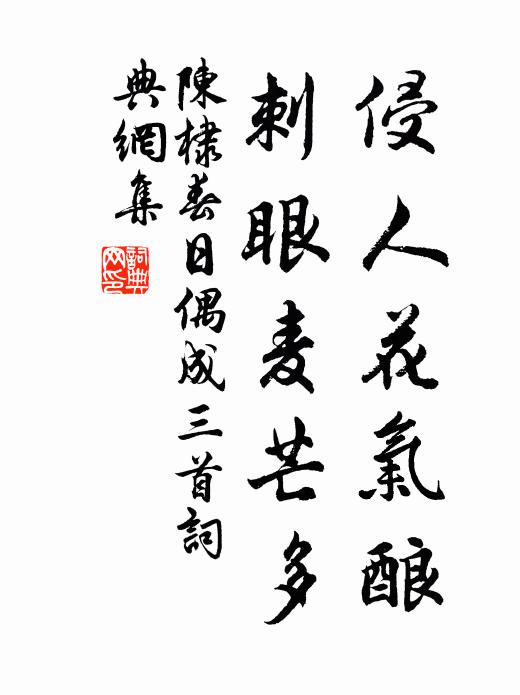 侵人花氣酿
刺眼麦芒多
陳棣春日偶成三首詞
典網集
詞典网印